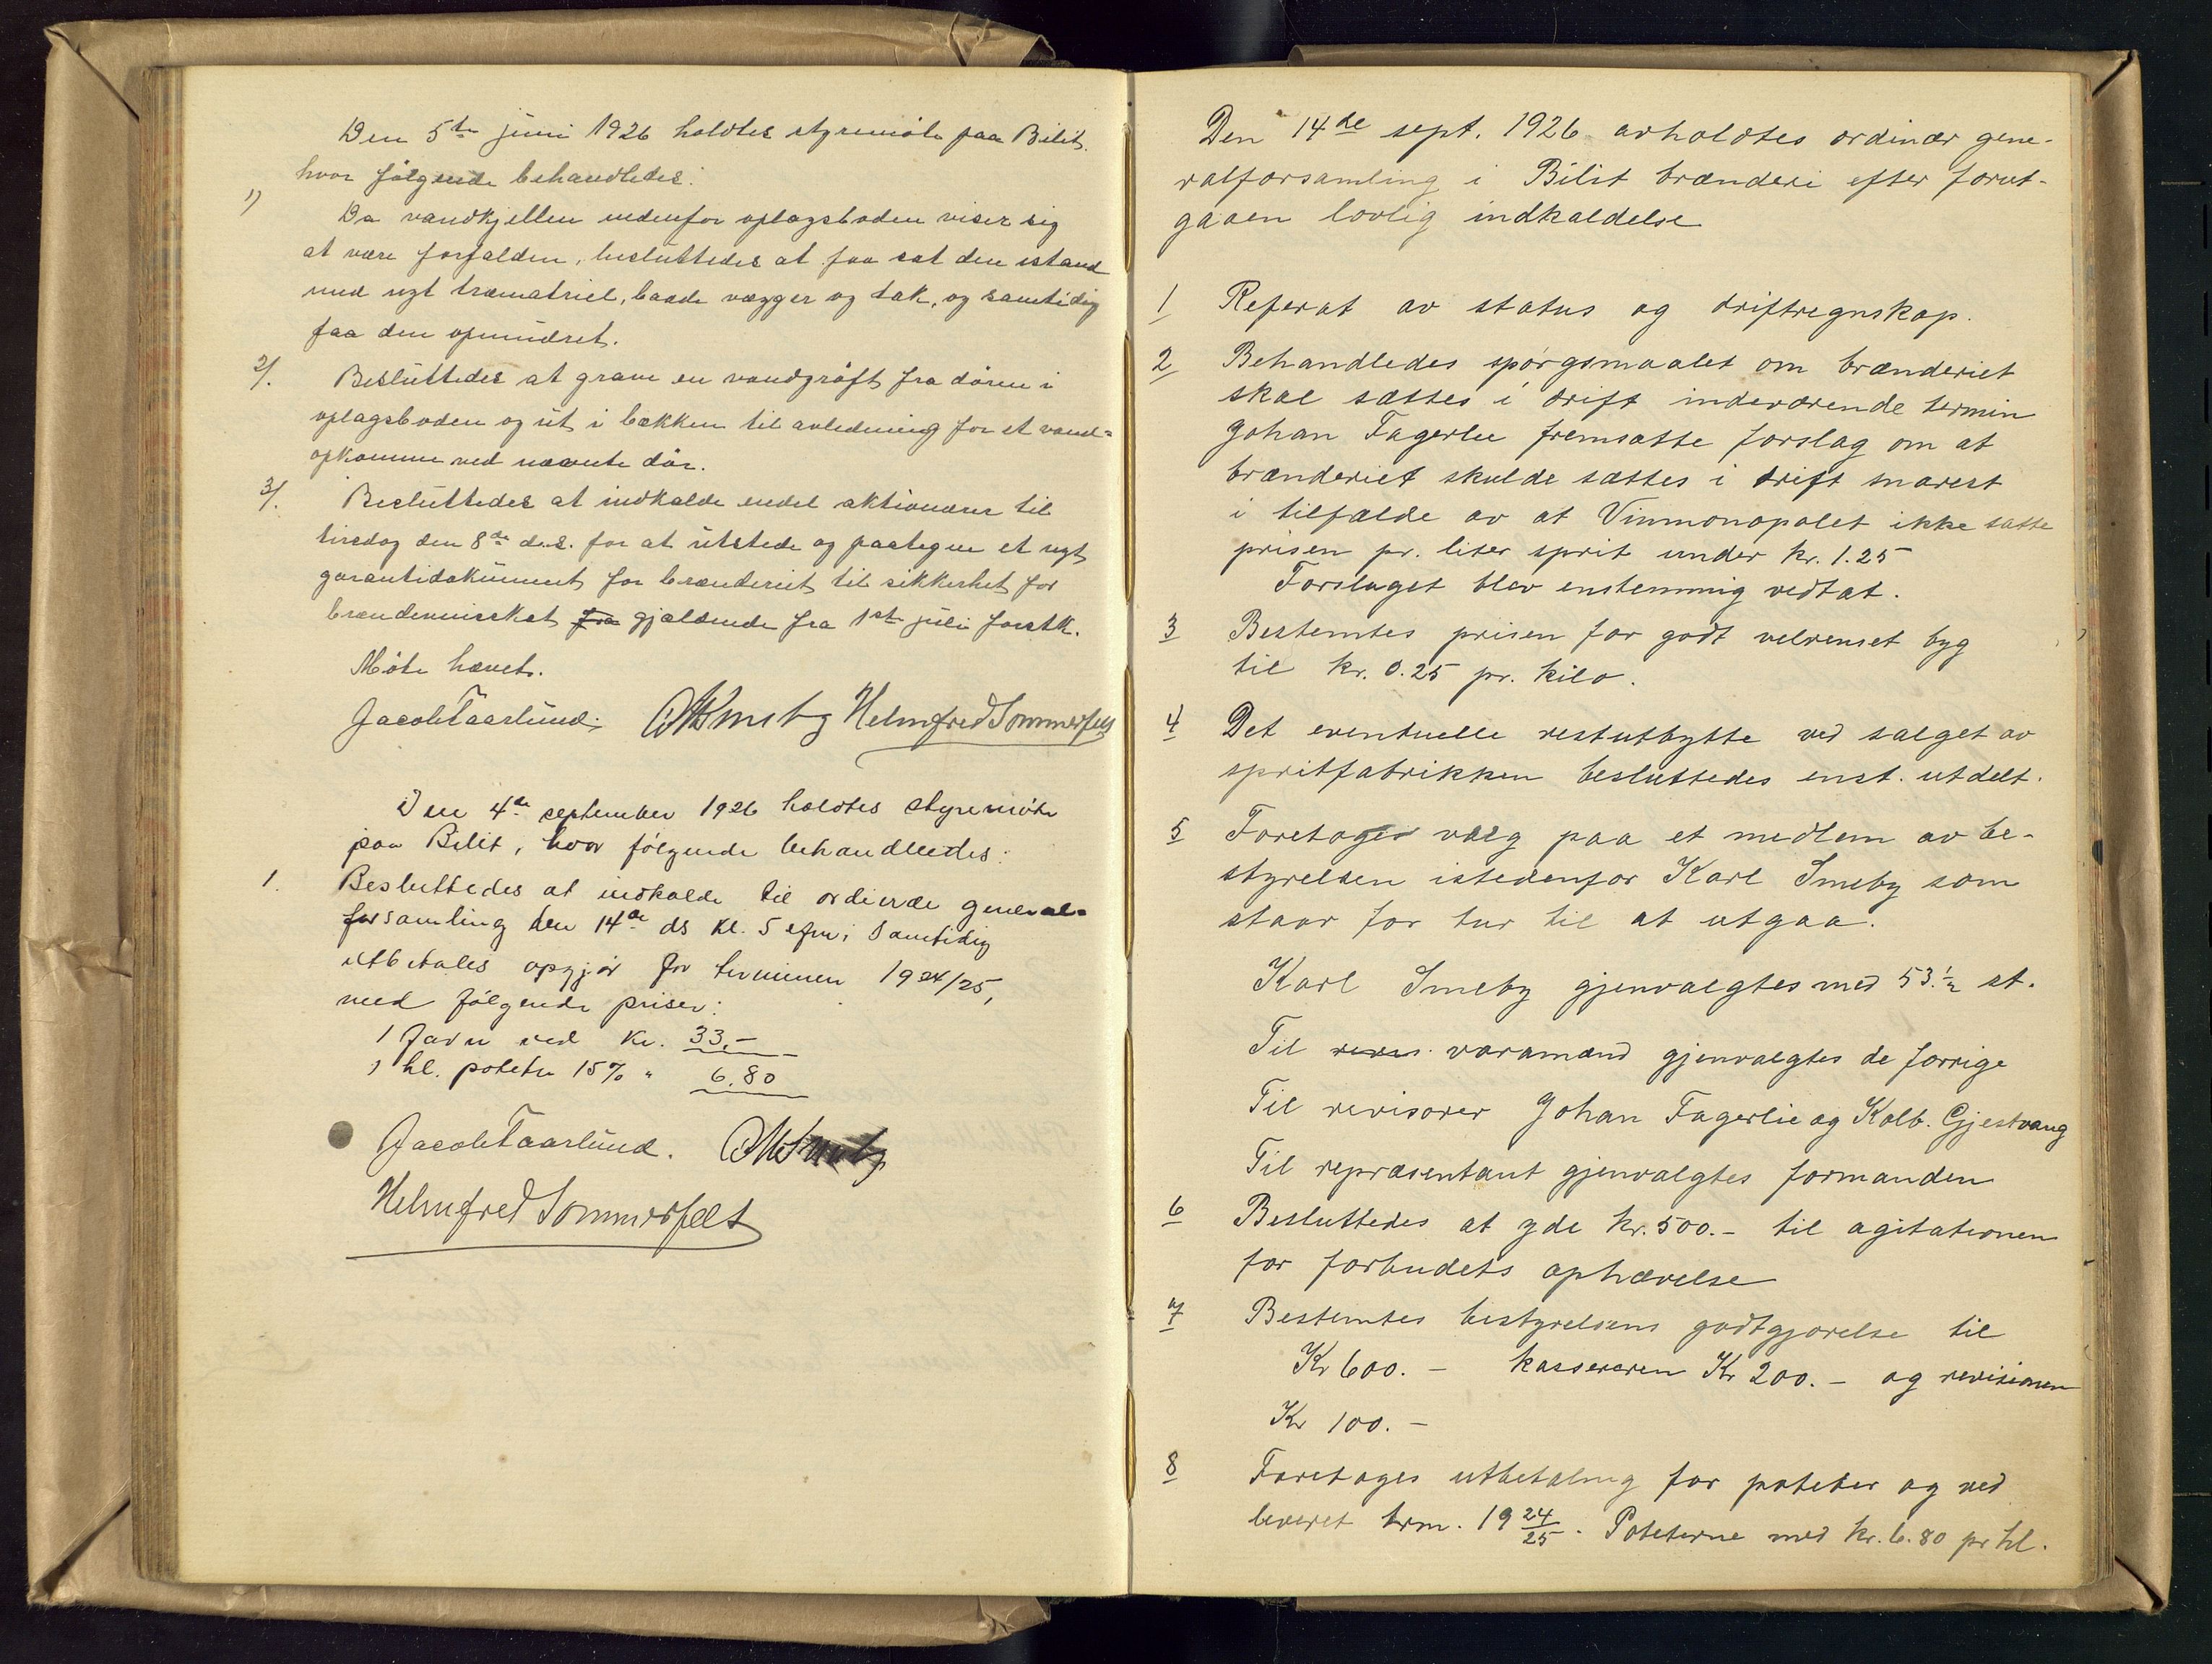 Den 5te juni 1926 holdtes styremöte paa Bilit,
hvor fölgende behandledes:
1) Da vandkjellen nedenfor oplagsboden viser sig
at være forfalden, besluttedes at faa sat den istand
med nyt træmatriel, baade vægger og tak, og samtidig
faa den opmudret.
2/. Besluttedes at grave en vandgröft fra dören i
oplagsboden og ut i bækken til avledning for et vand-
opkomme ved nævnte dör.
3/. Besluttedes at indkalde endel aktionærer til
tirsdag den 8de d.s. for at utstede og paategne et nyt
garantidokument for brænderiet til sikkerhet for
brændevinsskat fra gjældende fra 1st juli forstk.
Möte hævet.
Jacob Taarlund. OKSmeby Helmfred Sommerfelt
Den 4de september 1926 holdtes styremöte
paa Bilit, hvor fölgende behandledes:
1. Besluttedes at indkalde til ordinær general-
forsamling den 14de ds kl. 5 efm; Samtidig
utbetales opgjör for terminen 1924/25,
med fölgende priser:
1 Favn ved Kr. 33,-
1 hl. poteter 15% " 6.80
Jacob Taarlund. OKSmeby
Helmfred Sommerfelt
Den 14de sept. 1926 avholdtes ordinær gene-
ralforsamling i Bilit brænderi efter forut-
gaaen lovlig indkaldelse
1 Referat av status og driftregnskap.
2 Behandledes spörgsmaalet om brænderiet
skal sættes i drift indeværende termin
Johan Fagerlie fremsatte forslag om at
brænderiet skulde sættes i drift snarest
i tilfælde av at Vinmonopolet ikke satte
prisen pr. liter sprit under kr. 1.25
Forslaget blev enstemmig vedtat.
3 Bestemtes prisen for godt velrenset byg
til kr. 0.25 pr. kilo.
4 Det eventuelle restutbytte ved salget av
spritfabrikken besluttedes enst. utdelt.
5 Foretoges valg paa et medlem av be-
styrelsen istedenfor Karl Smeby som
staar for tur til at utgaa.
Karl Smeby gjenvalgtes med 53 1/2 st.
Til revis. varamænd gjenvalgtes de forrige
Til revisorer Johan Fagerlie og Kolb. Gjestvang
Til repræsentant gjenvalgtes formanden
6 Besluttedes at yde kr. 500.- til agitationen
for forbudets ophævelse
7 Bestemtes bestyrelsens godtgjørelse til
Kr 600.- kassereren Kr 200.- og revisionen
Kr 100.-
8 Foretoges utbetaling for poteter og ved
leveret trm. 19 24/25. Poteterne med kr. 6.80 pr hl.